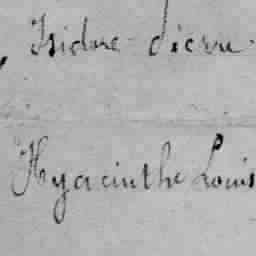 Isidore Pierre
Hyacinthe Louis